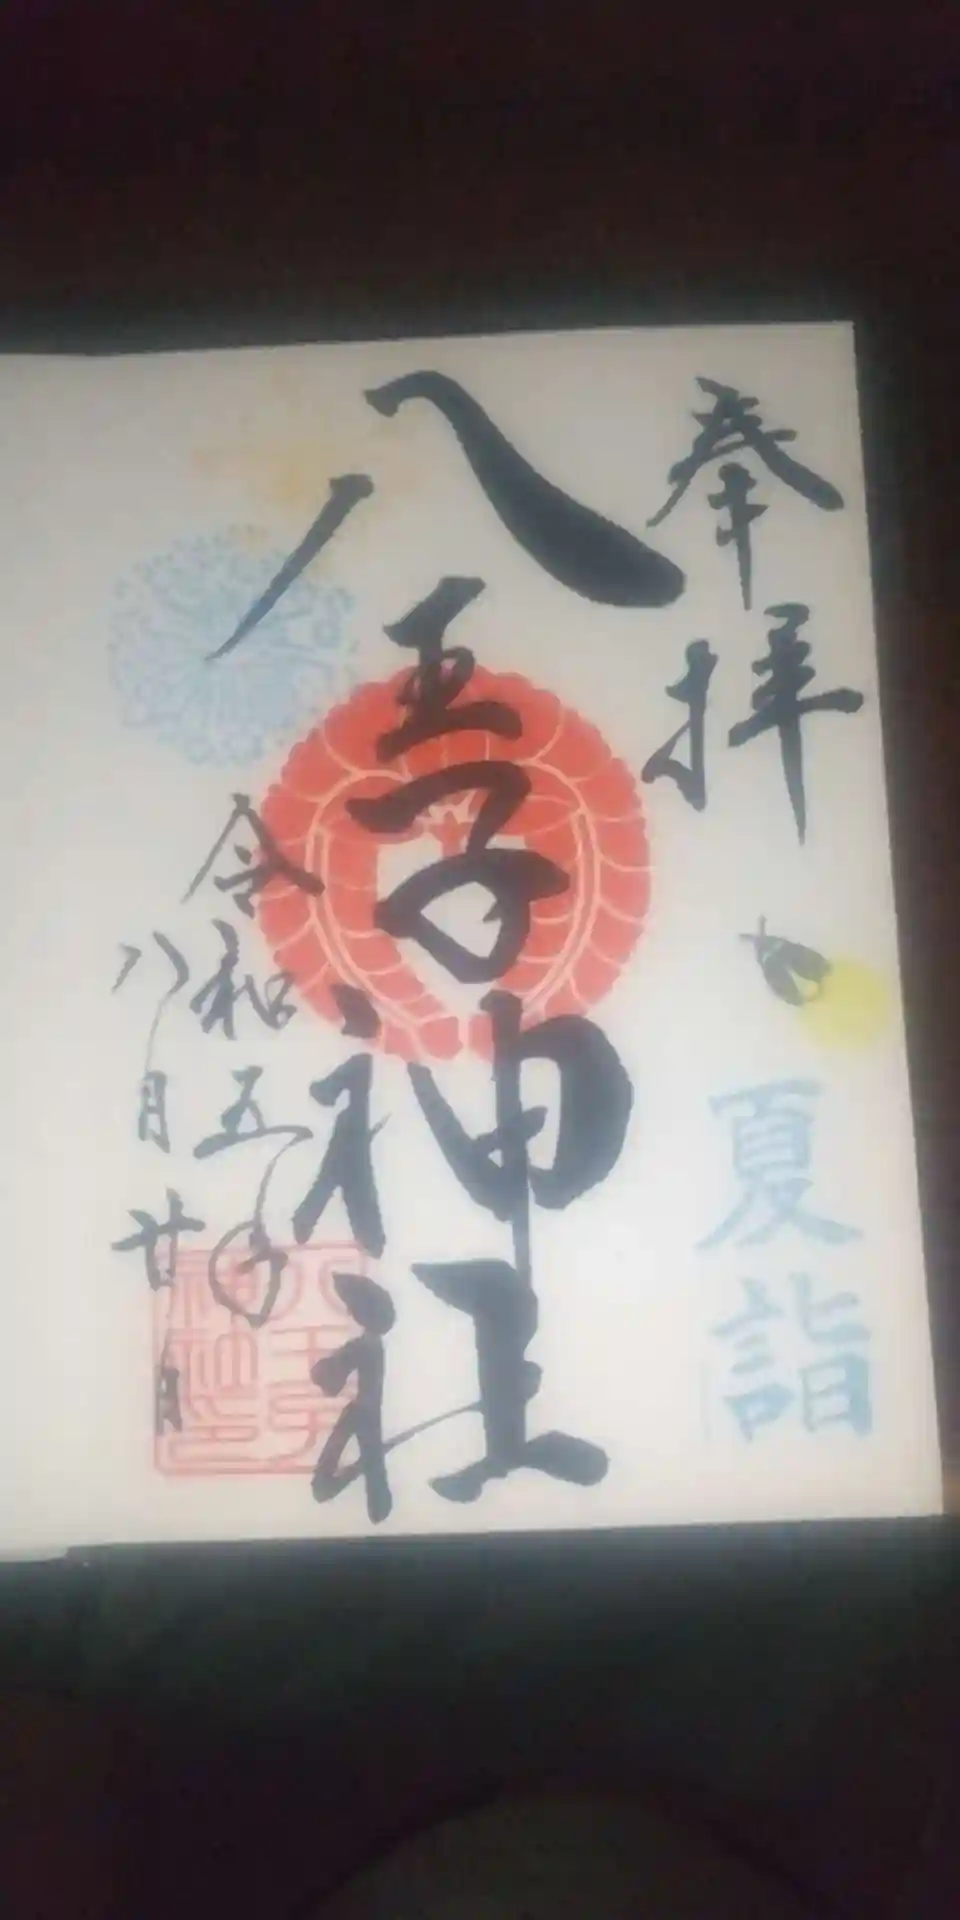 奉拝
夏詣
八王子神社
令和五年
八月廿日
八王子
神社印